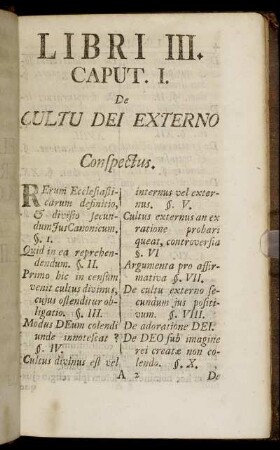 LIBRI III.
CAPUT. I.
De
CULTU DEI EXTERNO
Conspectus.
RErum Ecclesiasti-
carum definitio,
& divisio secun-
dum Jus Canonicum.
§. I.
Quid in ea reprehen-
dendum. §. II.
Primo hic in censum
venit cultus divinus,
cujus ostenditur ob-
ligatio. §. III.
Modus DEum colendi
unde innotescat?
§. IV.
Cultus divinus est vel
internus vel exter-
nus. §. V.
Cultus externus an ex
ratione probari
queat, controversia
§. VI
Argumenta pro affir-
mativa §. VII.
De cultu externo se-
cundum jus positi-
vum. §. VIII.
De adoratione DEI.
De DEO sub imagine
rei creatæ non co-
lendo. §. X.
A 2 De